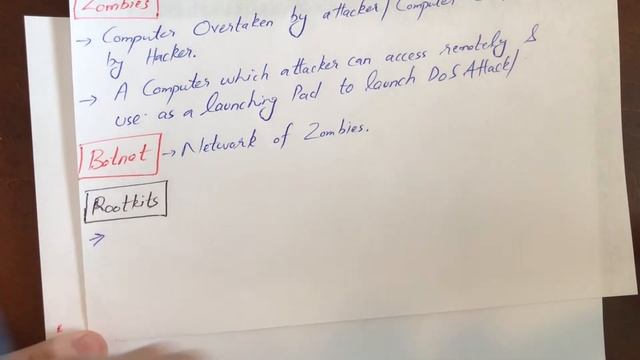 Zombies
→ Computer Overtaken by attacker/Computer
by Hacker.
→ A Computer which attacker can access remotely &
use as a launching Pad to launch DoS Attack/
Botnet → Network of Zombies.
Rootkits
→